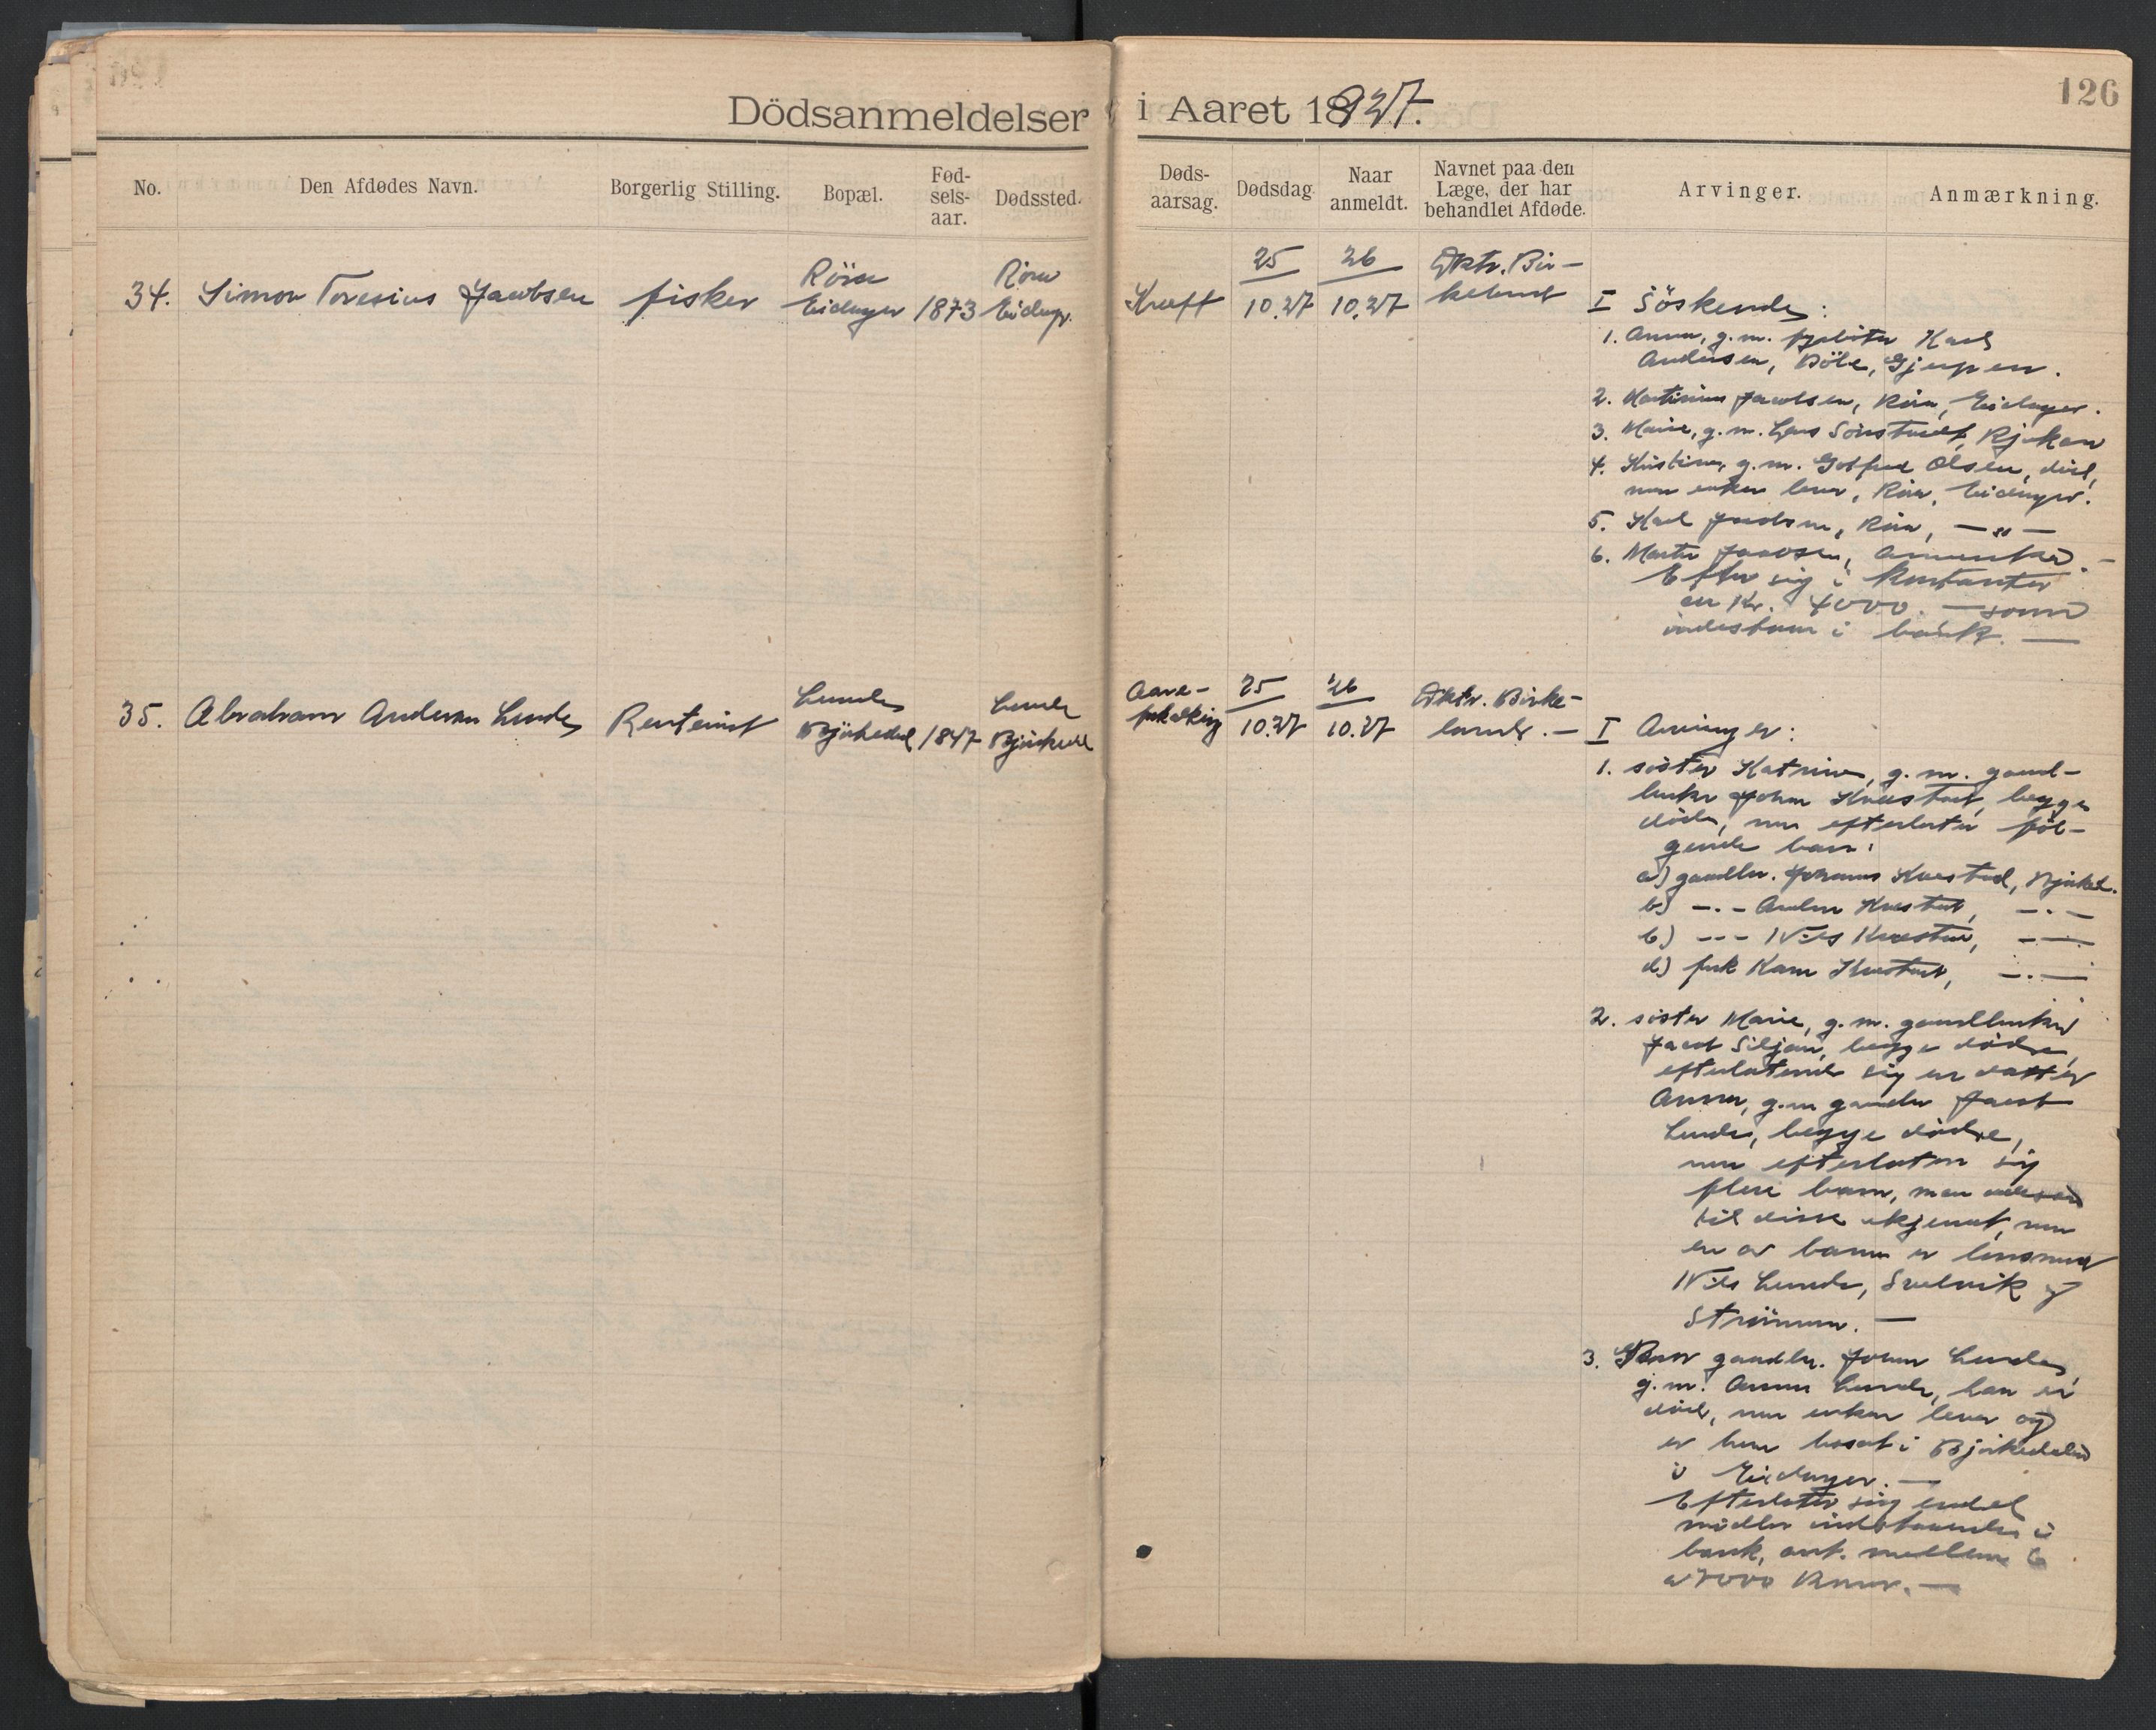 Dödsanmeldelser i Aaret 1927.
126
No.
Den Afdødes Navn.
Borgerlig Stilling.
Bopæl.
Fød-
sels-
aar.
Dødssted.
Døds-
aarsag.
Dødsdag
Naar
anmeldt.
Navnet paa den
Læge, der har
behandlet Afdøde.
Arvinger.
Anmærkning.
34. Simon Toresius Jacobsen fisker
Röra
Eidanger
1873
Röra
Eidangr.
Kræft
25
10.27
26
10.27
Dktr. Bir-
keland
I Söskende:
1. Anna, g.m. Karl
Andersen, Böle, Gjerpen.
2. Martinius Jacobsen, Röra, Eidanger.
3. Marie, g.m. Lars Rjukan
4. Kristine, g.m. Gotfred Olsen, död,
men enken lever, Röra, Eidanger.
5. Karl Jacobsen, Röra, — " —
6. Martin Jacobsen, Amerika. —
Efter sig i kontanter
en Kr. 4000. — som
indestaar i bank. —
35. Abraham Andersen Lunde Rentenist
Lunde
Bjørkedal
1847
Lunde
Bjørkedal
Aare-
forkalkning
25
10.27
26
10.27
Dktr. Birke-
land. —
I Arvinger:
1. söster Katrine, g.m. gaard-
bruker Johan Kvestad, begge
döde, men efterlater föl-
gende barn:
a) gaardbr. Johannes Kvestad, Bjørked.
b) -.- Anders Kvestad, -.-
c) -.- Nils Kvestad, -.-
d) frk Karen Kvestad, -.-
2. söster Marie, g.m. gaardbruker
Jacob Siljan, begge döde,
efterlatende sig en datter
Anna, g.m. gaardbr Jacob
Lunde, begge döde,
men efterlater sig
flere barn, men adressen
til disse ukjendt, men
en av barna er lensmand
Nils Lunde, Svelvik og
Strömmen. —
3. Bror gaardbr. Johan Lunde,
g.m. Anna Lunde, han er
död, men enken lever og
er hun bosat i Bjørkedalen
i Eidanger. —
Efterlater sig endel
midler indestaaende i
bank, ant. mellem 6
a 7000 Kroner. —